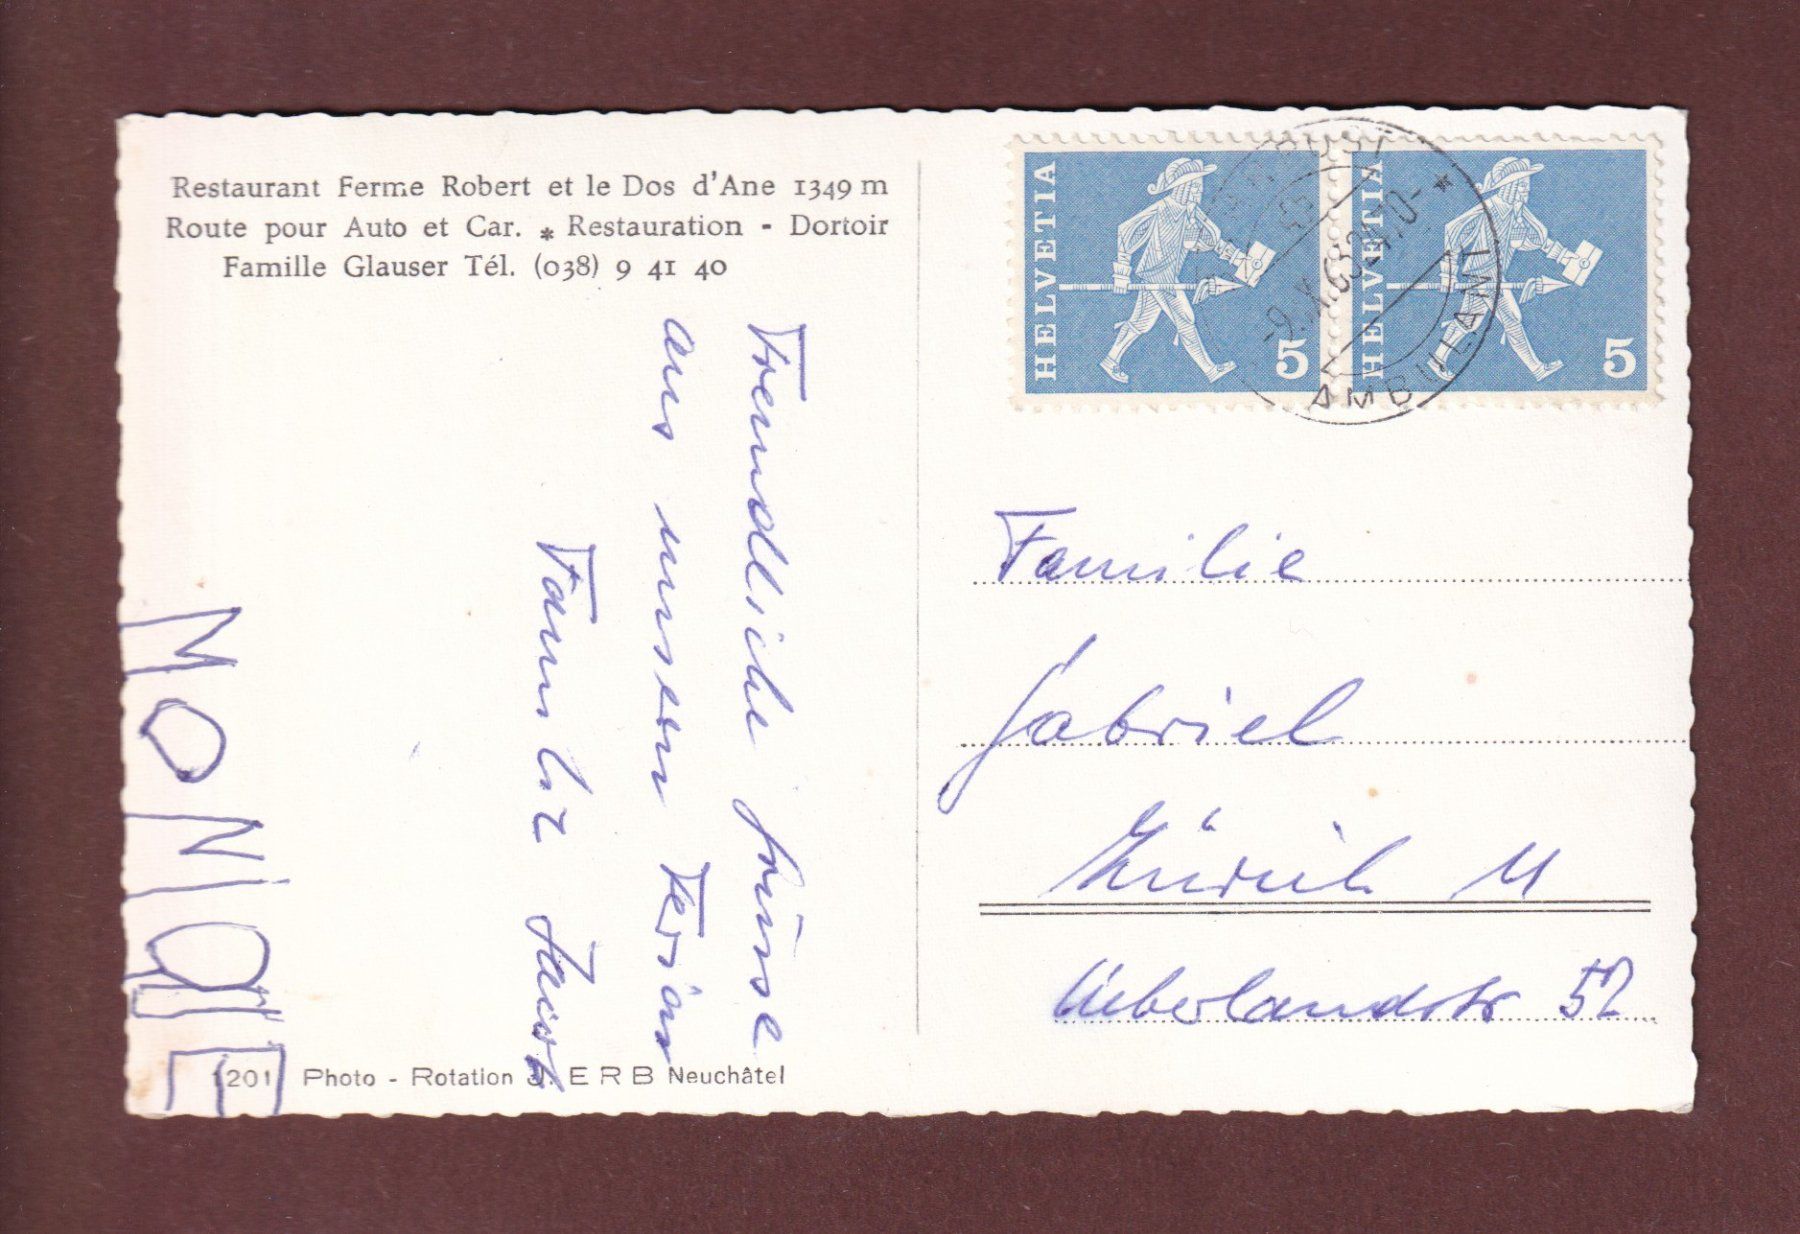 Restaurant Ferme Robert et le Dos d'Ane 1349 m
Route pour Auto et Car. * Restauration - Dortoir
Famille Glauser Tél. (038) 9 41 40
Freundliche Grüsse
aus unsern Ferien
Familie
MONIQUE
1201 Photo - Rotation J. ERB Neuchâtel
HELVETIA 5
HELVETIA 5
POST
-9.IX.63 24.10-*
AMBULANT
Familie
Gabriel
Zürich 11
Ueberlandstr 52